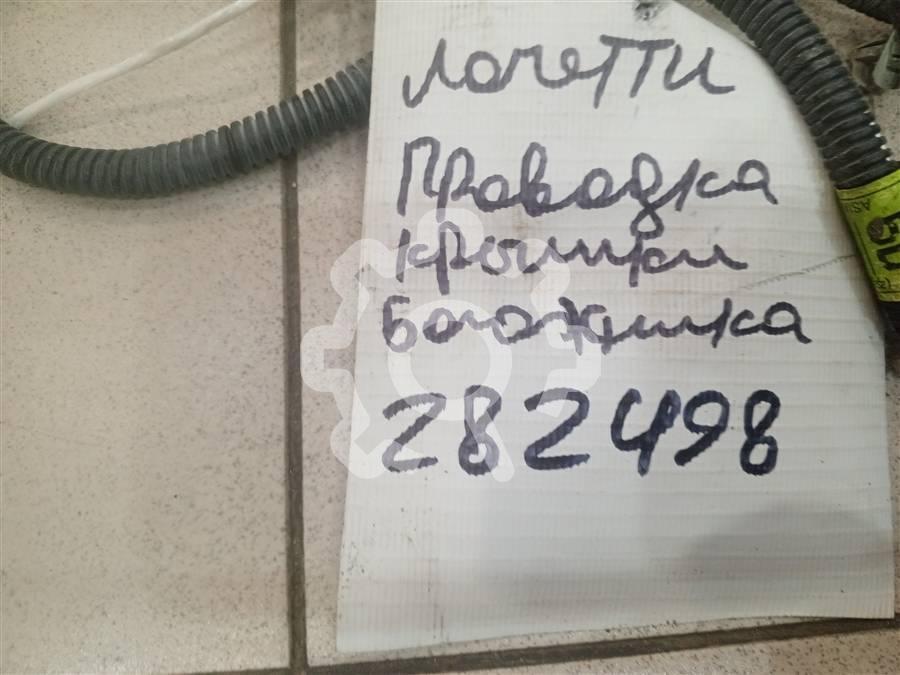 Лочетти
Проводка
крышки
Богожника
282498